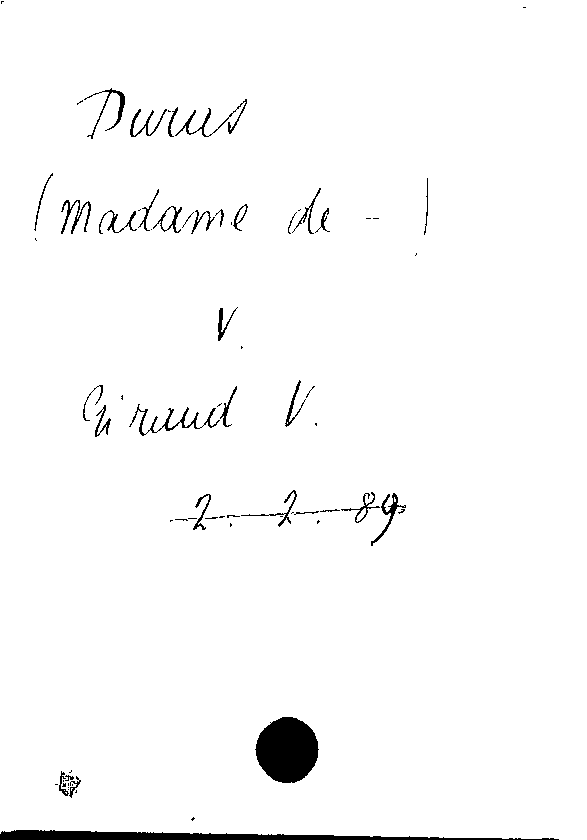 Durus
(Madame de - )
V.
Giraud V.
2. 2. 89